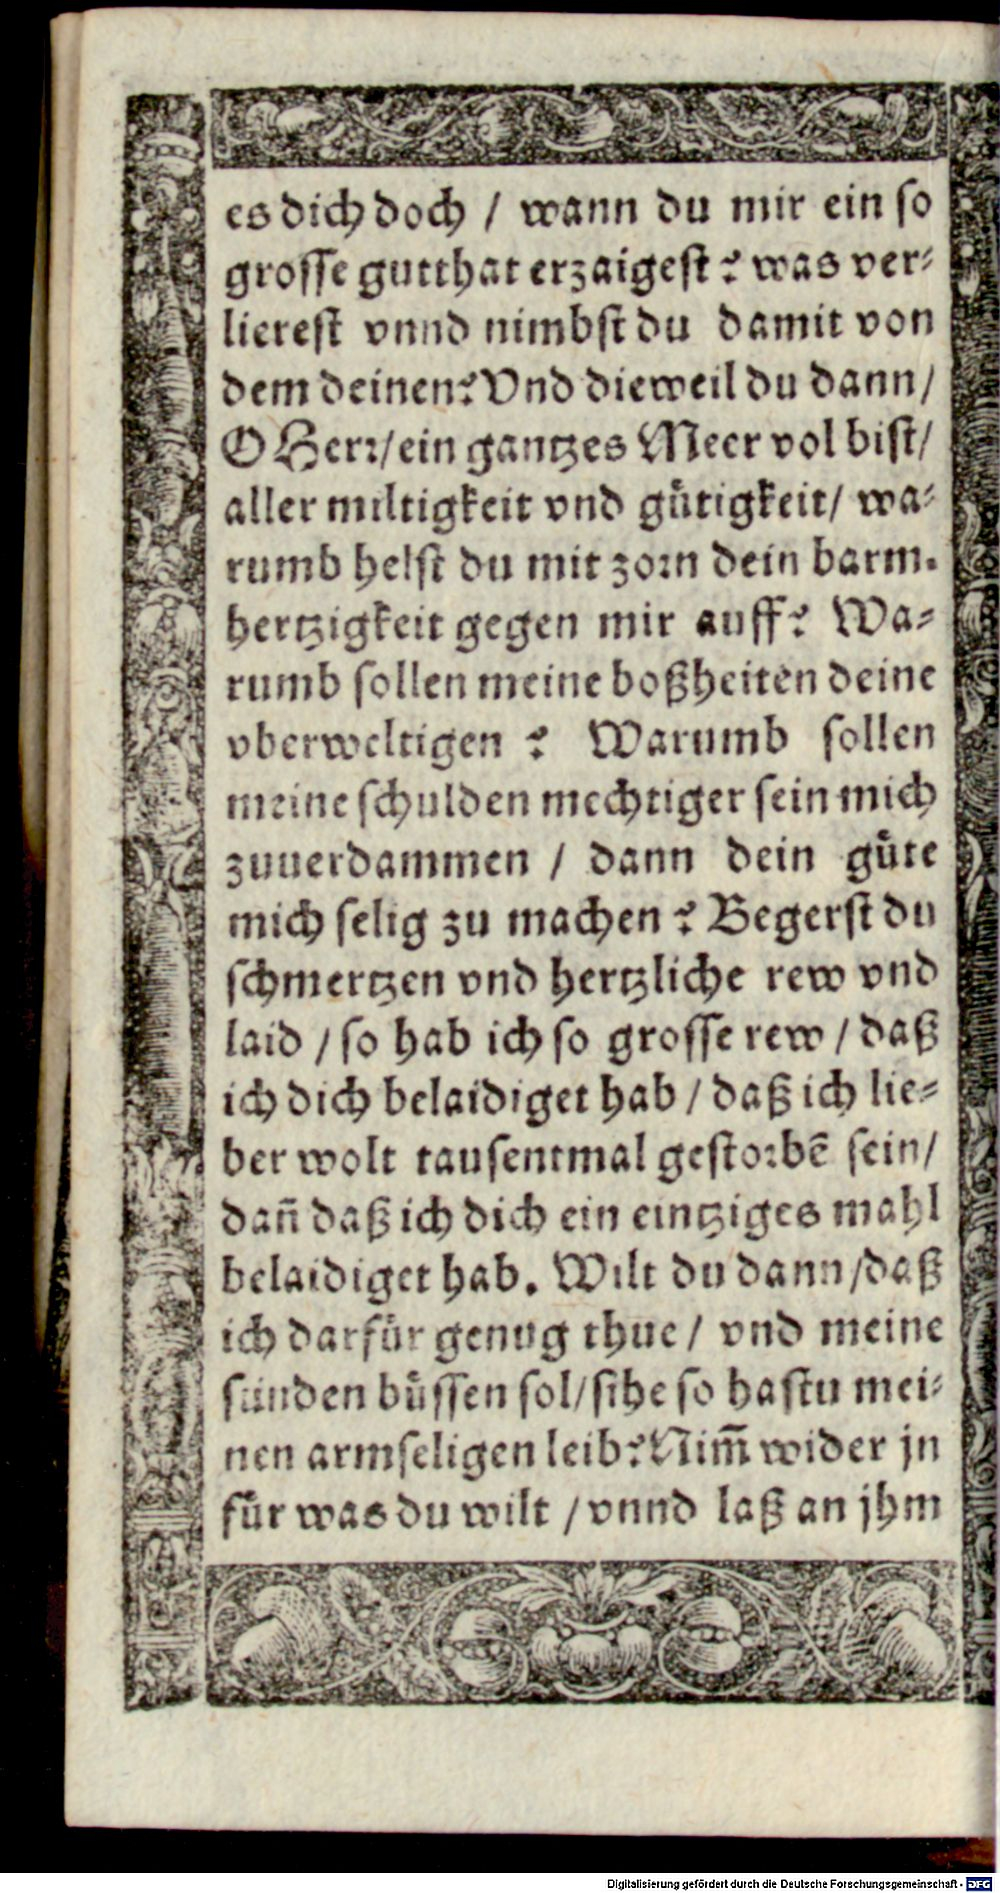 es dich doch / wann du mir ein so
grosse gutthat erzaigest? was ver-
lierest vnnd nimbst du damit von
dem deinen? Vnd dieweil du dann/
O Herr/ ein gantzes Meer vol bist/
aller miltigkeit vnd gütigkeit/ wa-
rumb helst du mit zorn dein barm-
hertzigkeit gegen mir auff? Wa-
rumb sollen meine boßheiten deine
vberweltigen? Warumb sollen
meine schulden mechtiger sein mich
zuuerdammen / dann dein güte
mich selig zu machen? Begerst du
schmertzen vnd hertzliche rew vnd
laid / so hab ich so grosse rew / daß
ich dich belaidiget hab / daß ich lie-
ber wolt tausentmal gestorbē sein/
dañ daß ich dich ein eintziges mahl
belaidiget hab. Wilt du dann/ daß
ich darfür genug thue / vnd meine
sünden büssen sol/ sihe so hastu mei-
nen armseligen leib? Nim̃ wider jn
für was du wilt / vnnd laß an jhm
Digitalisierung gefördert durch die Deutsche Forschungsgemeinschaft - DFG